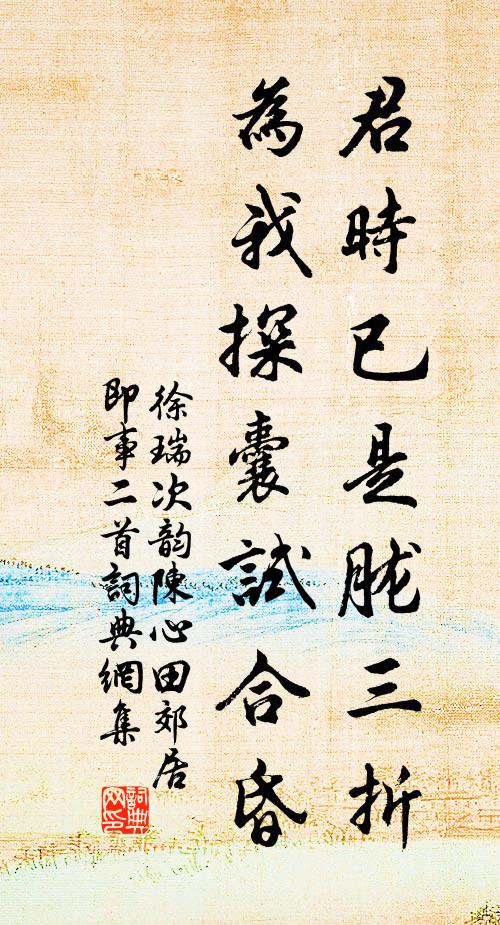 君時已是肱三折
為我探囊試合昏
徐瑞次韵陳心田郊居
即事二首詞典網集
詞典網印